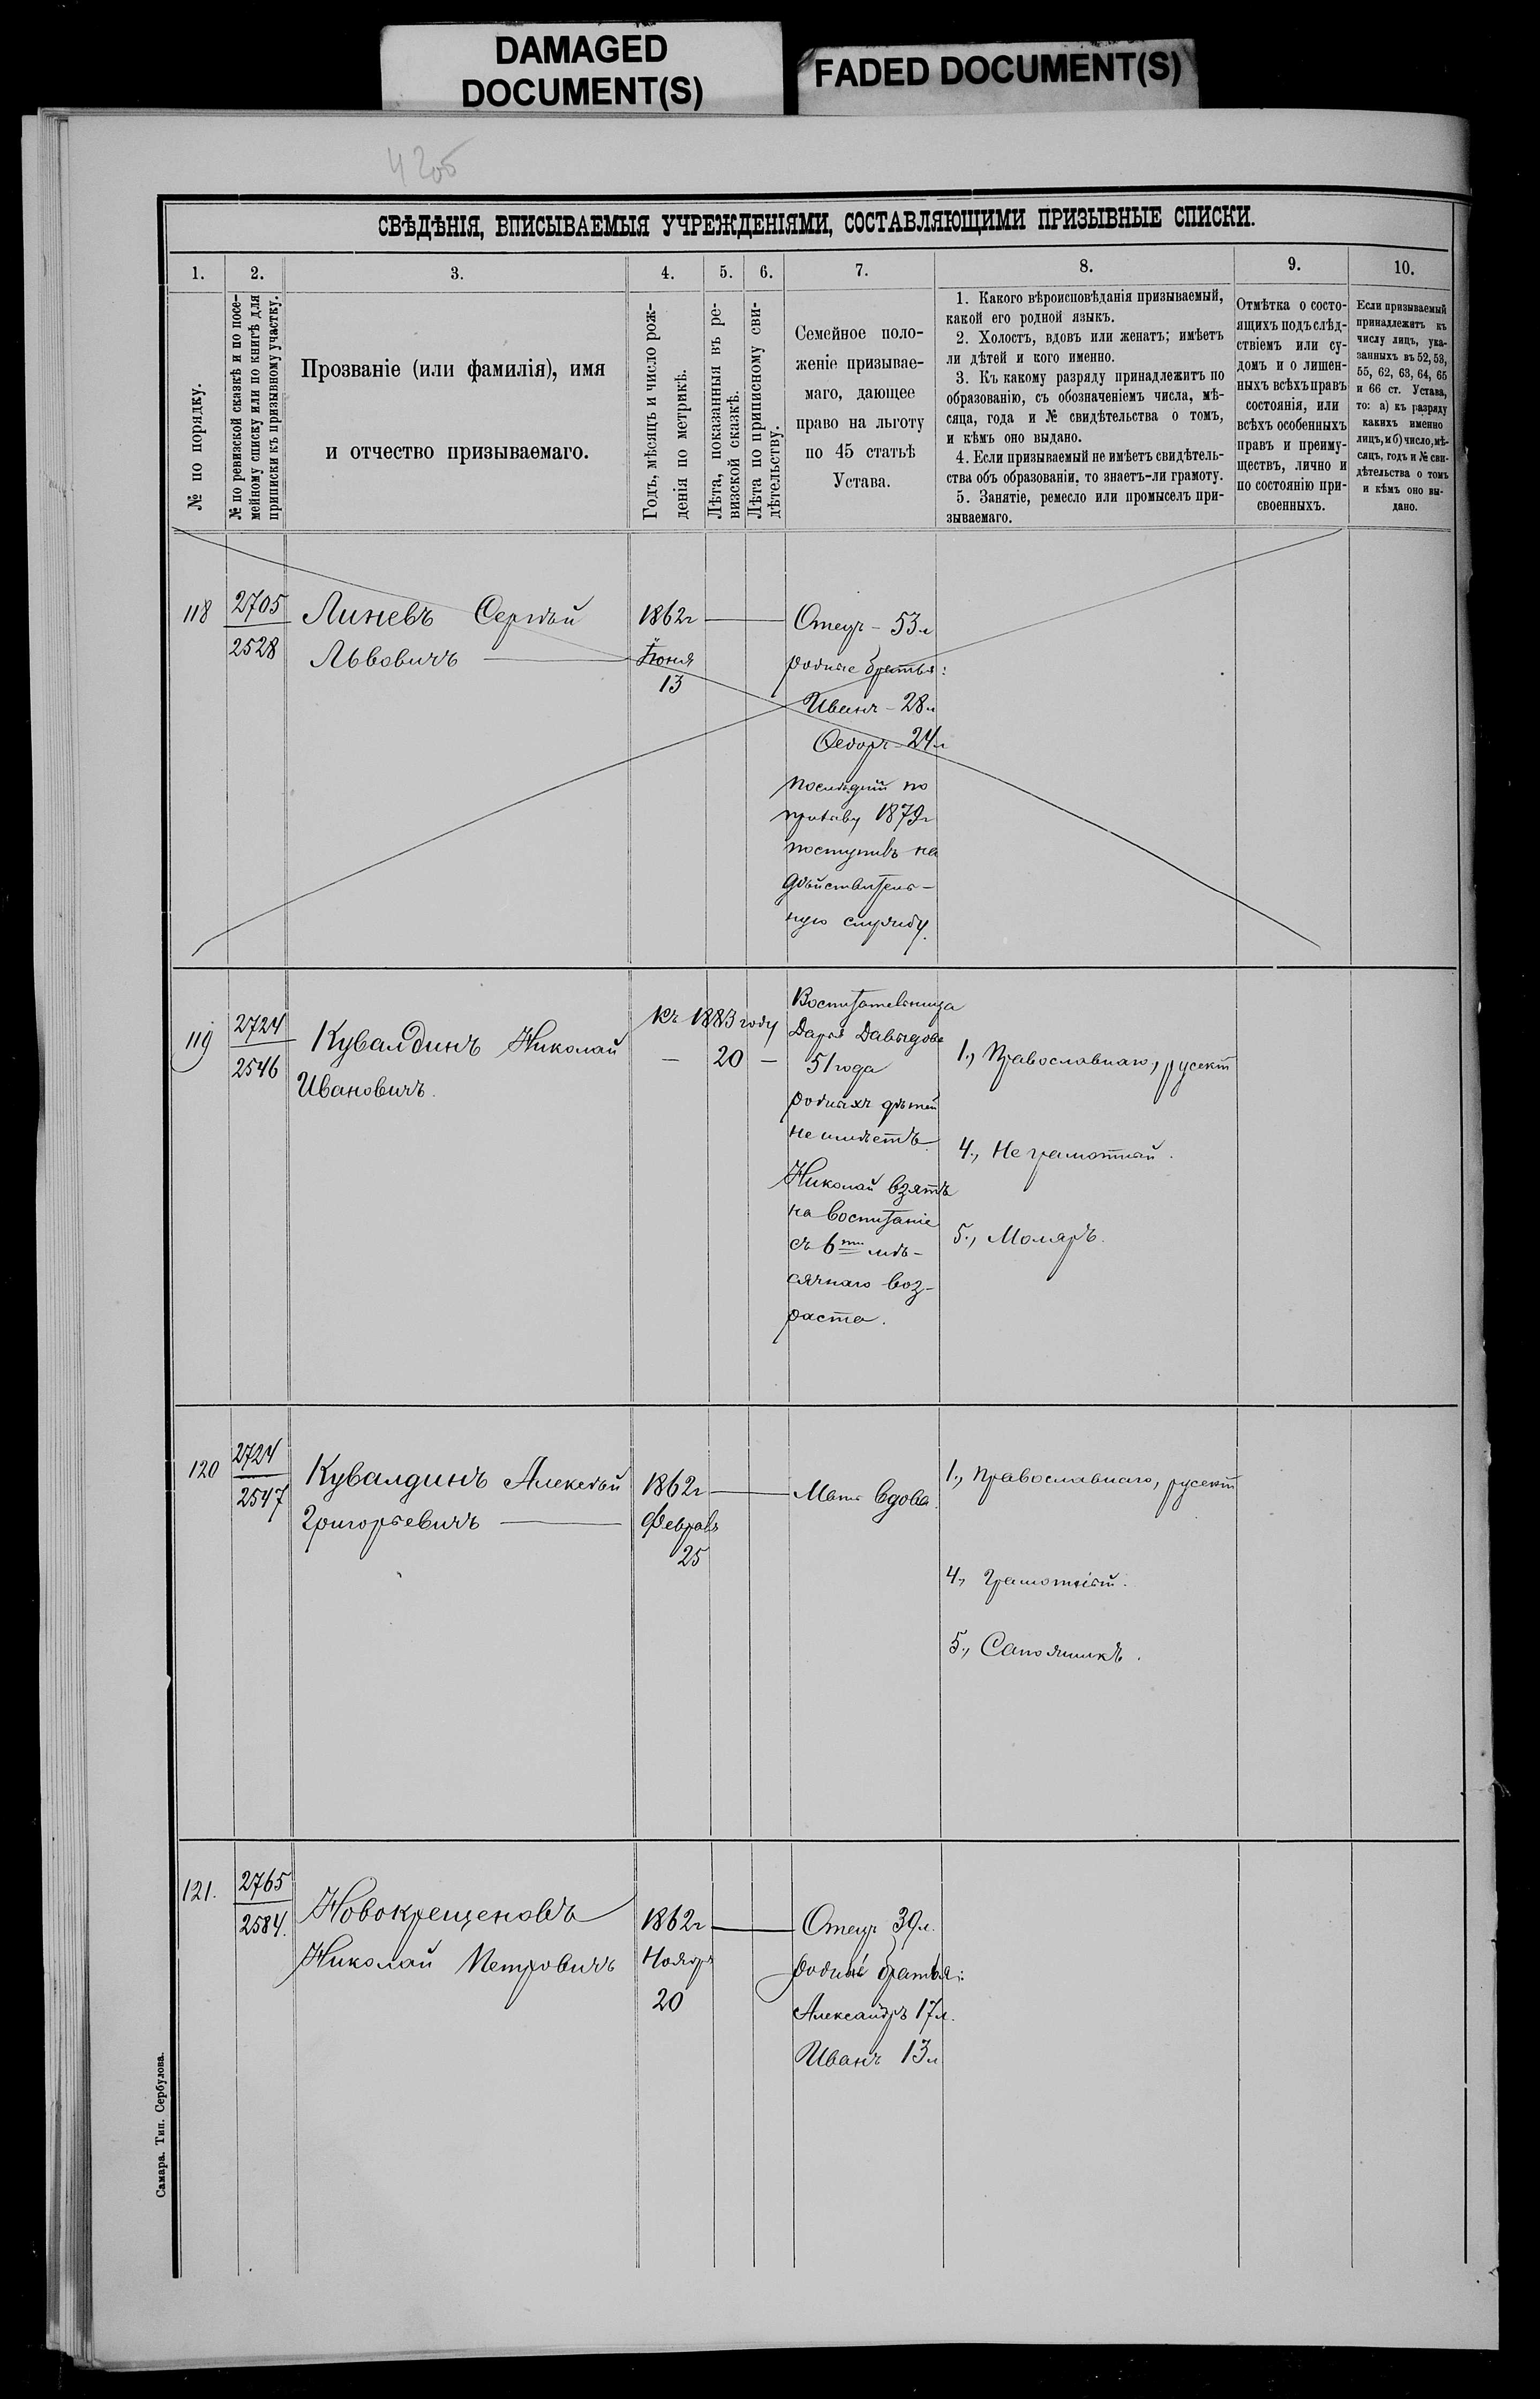 DAMAGED
DOCUMENT(S)
FADED DOCUMENT(S)
42об
СВѢДѢНІЯ, ВПИСЫВАЕМЫЯ УЧРЕЖДЕНІЯМИ, СОСТАВЛЯЮЩИМИ ПРИЗЫВНЫЕ СПИСКИ.
1. 2. 3. 4. 5. 6. 7. 8. 9. 10.
№ по порядку.
№ по ревизской сказкѣ и по посе-
мейному списку или по книгѣ для
приписки къ призывному участку.
Прозваніе (или фамилія), имя
и отчество призываемаго.
Годъ, мѣсяцъ и число рож-
денія по метрикѣ.
Лѣта, показанныя въ ре-
визской сказкѣ.
Лѣта по приписному сви-
дѣтельству.
Семейное поло-
женіе призывае-
маго, дающее
право на льготу
по 45 статьѣ
Устава.
1. Какого вѣроисповѣданія призываемый,
какой его родной языкъ.
2. Холостъ, вдовъ или женатъ; имѣетъ
ли дѣтей и кого именно.
3. Къ какому разряду принадлежитъ по
образованію, съ обозначеніемъ числа, мѣ-
сяца, года и № свидѣтельства о томъ,
и кѣмъ оно выдано.
4. Если призываемый не имѣетъ свидѣтель-
ства объ образованіи, то знаетъ-ли грамоту.
5. Занятіе, ремесло или промыселъ при-
зываемаго.
Отмѣтка о состо-
ящихъ подъ слѣд-
ствіемъ или су-
домъ и о лишен-
ныхъ всѣхъ правъ
состоянія, или
всѣхъ особенныхъ
правъ и преиму-
ществъ, лично и
по состоянію при-
своенныхъ.
Если призываемый
принадлежитъ къ
числу лицъ, ука-
занныхъ въ 52, 53,
55, 62, 63, 64, 65
и 66 ст. Устава,
то: а) къ разряду
какихъ именно
лицъ, и б) число, мѣ-
сяцъ, годъ и № сви-
дѣтельства о томъ
и кѣмъ оно вы-
дано.
118
2705
2528
Линевъ Сергѣй
Львовичъ
1862г
Іюня
13
Отецъ – 53л
родные братья:
Иванъ – 28л
Федоръ – 24л
послѣдній по
призыву 1879г
поступилъ на
дѣйствитель-
ную службу.
119
2724
2546
Кувалдинъ Николай
Ивановичъ.
къ 1883 году
— 20 —
Воспитательница
Дарья Давыдова
51 года
родныхъ дѣтей
не имѣетъ.
Николай взятъ
на воспитаніе
съ 6ти мѣ-
сячнаго воз-
раста.
1., Православнаго, русскій
4., Не грамотный.
5., Моляръ.
120
2724
2547
Кувалдинъ Алексѣй
Григорьевичъ
1862г
Февраля
25
Мать вдова.
1., Православнаго, русскій
4., Грамотный.
5., Сапожникъ.
121.
2765
2584.
Новокрещеновъ
Николай Петровичъ
1862г
Ноября
20
Отецъ 39л.
родные братья:
Александръ 17л.
Иванъ 13л
Самара. Тип. Сербулова.